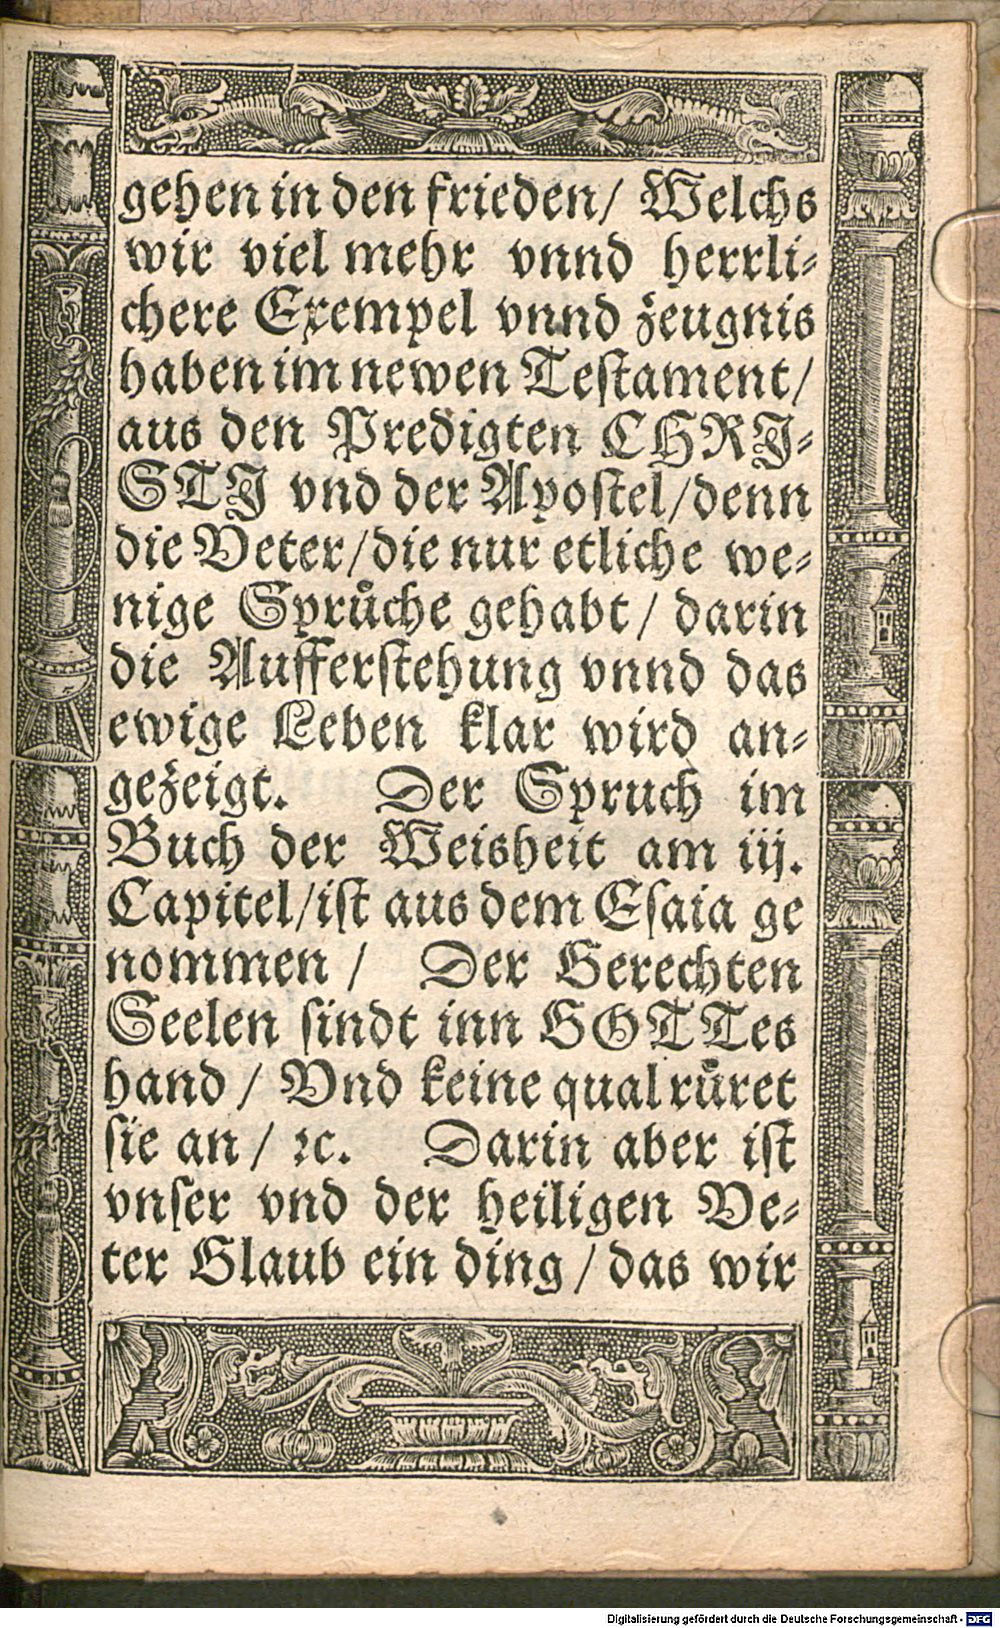 gehen in den frieden/ Welchs
wir viel mehr vnnd herrli-
chere Exempel vnnd zeugnis
haben im newen Testament/
aus den Predigten CHRJ-
STJ vnd der Apostel/denn
die Veter/die nur etliche we-
nige Sprüche gehabt/ darin
die Aufferstehung vnnd das
ewige Leben klar wird an-
gezeigt. Der Spruch im
Buch der Weisheit am iij.
Capitel/ist aus dem Esaia ge
nommen/ Der Gerechten
Seelen sindt inn GOTTes
hand/ Vnd keine qual rüret
sie an/ ꝛc. Darin aber ist
vnser vnd der heiligen Ve-
ter Glaub ein ding/das wir
Digitalisierung gefördert durch die Deutsche Forschungsgemeinschaft - DFG